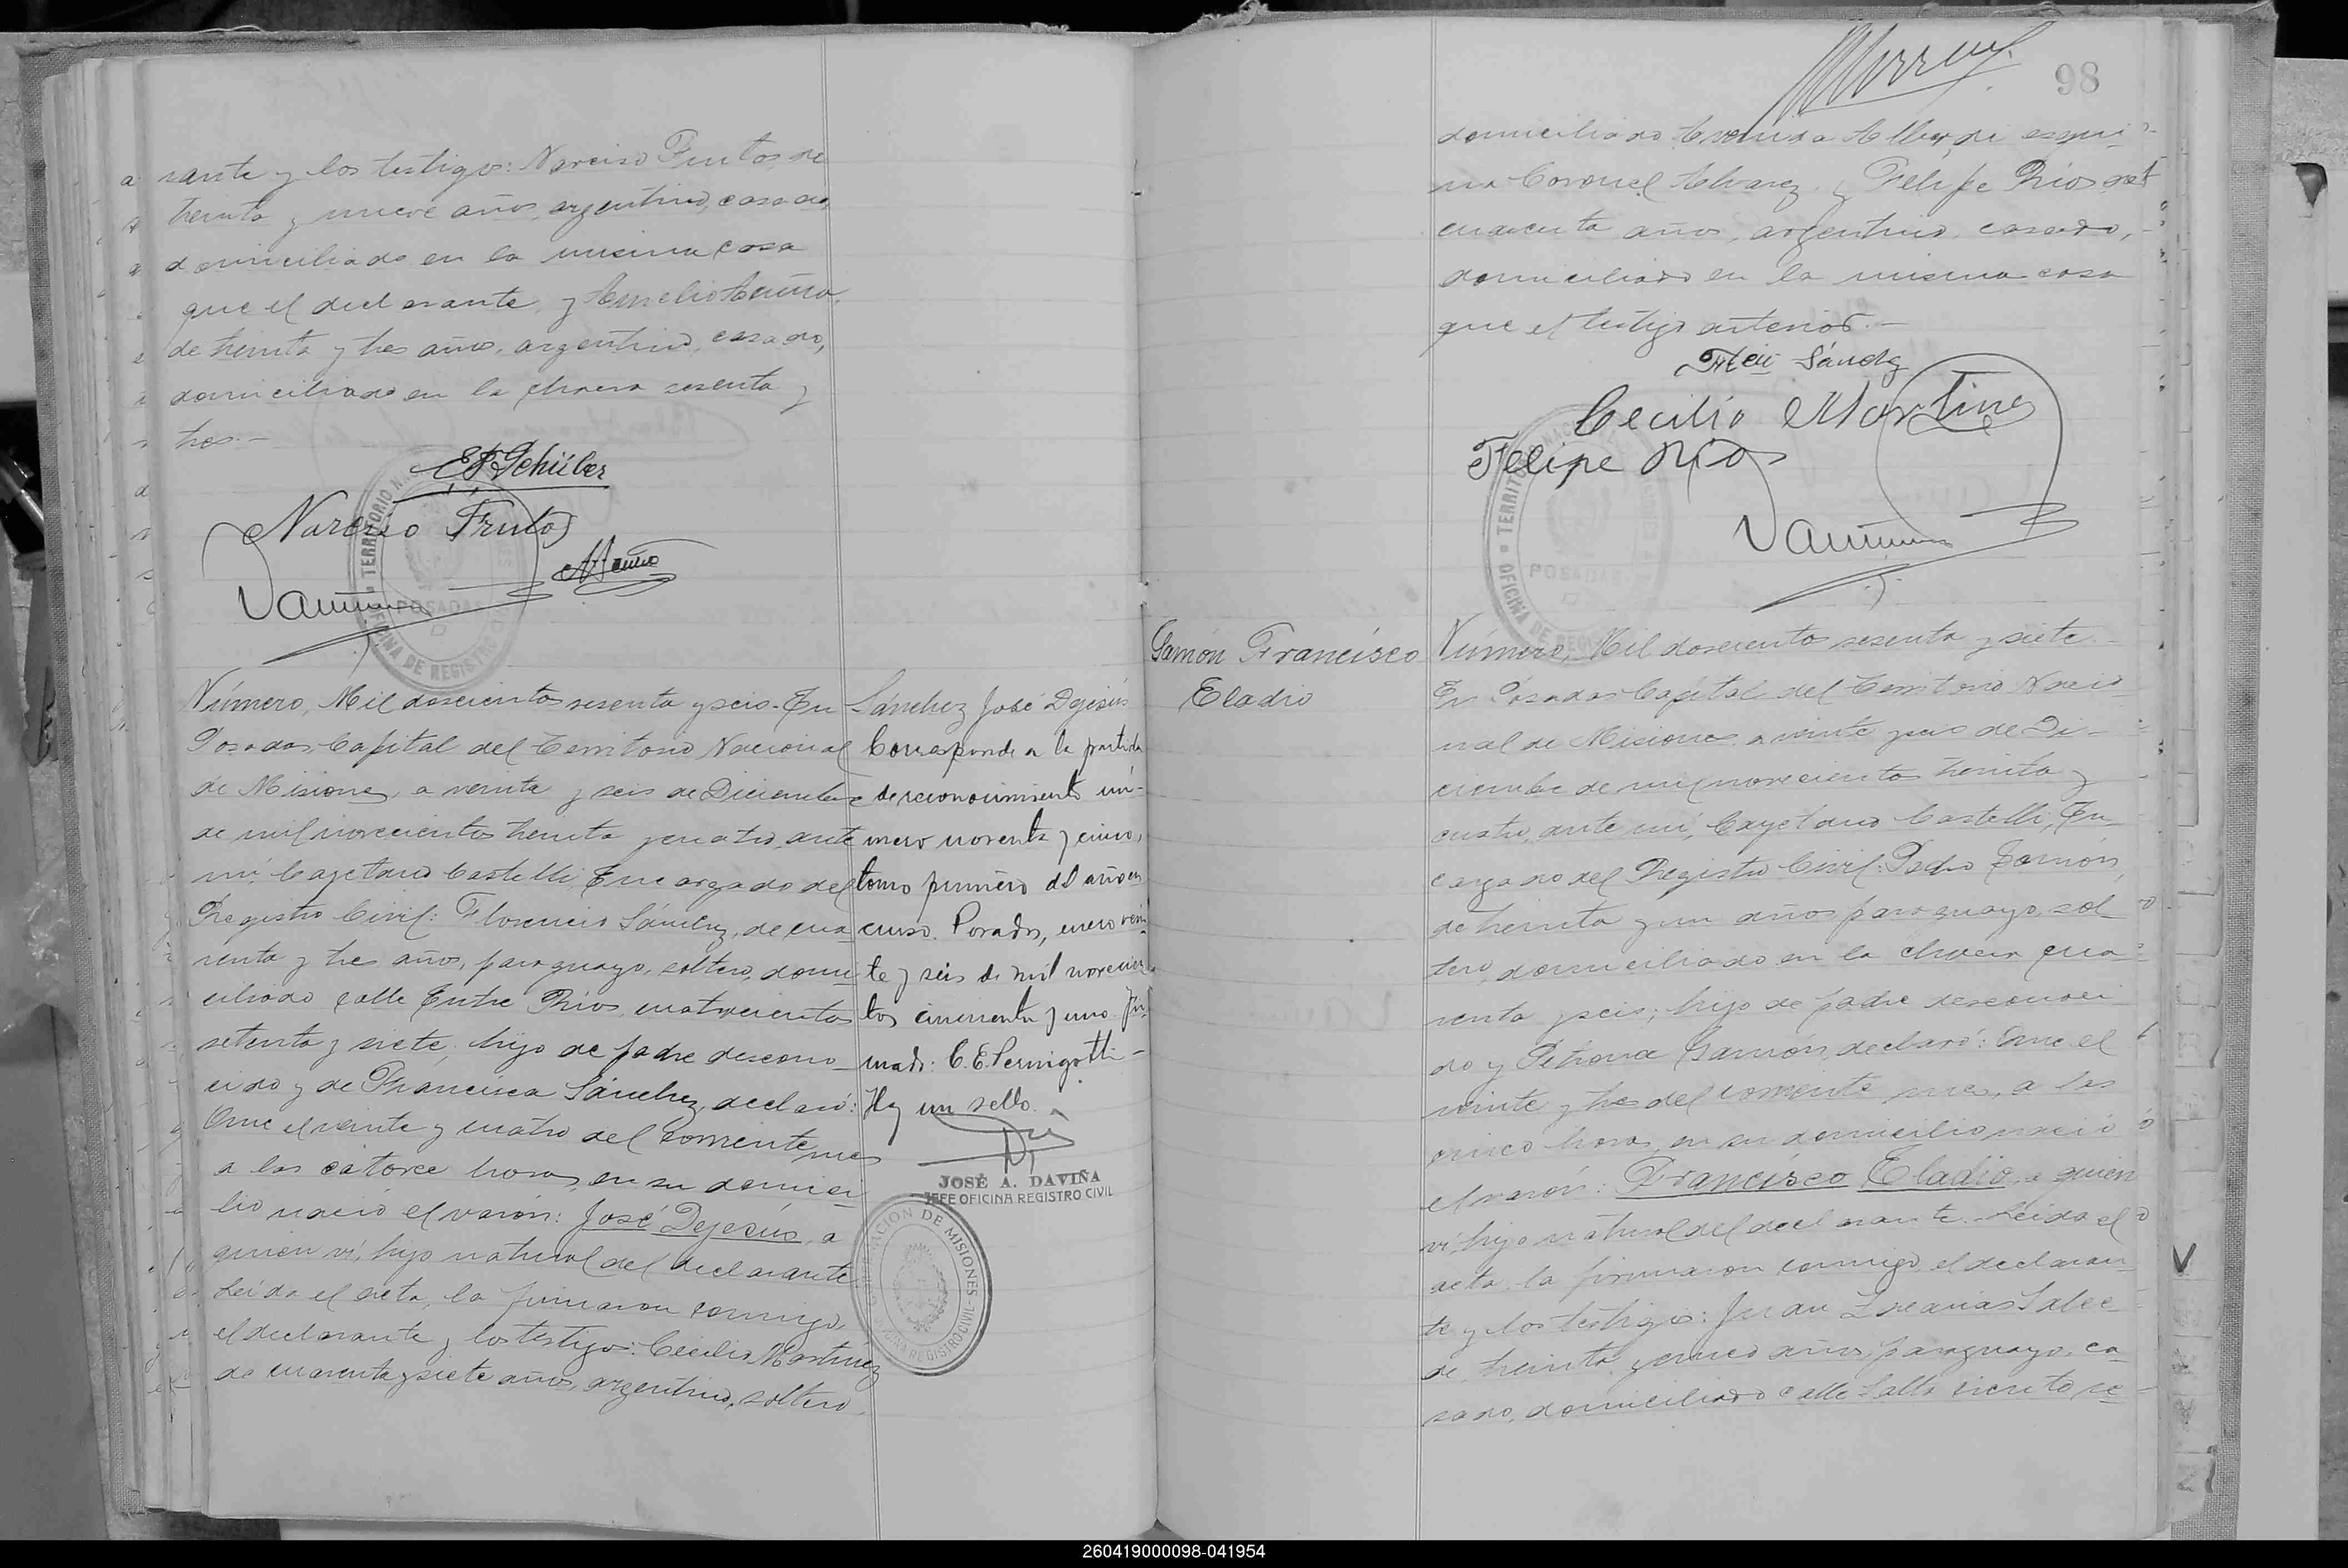 rante y los testigos: Narciso Frutos, de
treinta y nueve años, argentino, casado,
domiciliado en la misma casa
que el declarante, y Amelio Acuña,
de treinta y tres años, argentino, casado,
domiciliado en la chacra sesenta y
tres.—
Narciso Frutos
TERRITORIO
POSADAS
OFICINA DE REGISTRO
Número, Mil doscientos sesenta y seis. En
Posadas, Capital del Territorio Nacional
de Misiones, a veinte y seis de Diciembre
de mil novecientos treinta y cuatro, ante
mí, Cayetano Castelli, Encargado del
Registro Civil: Florencio Sánchez, de cua-
renta y tres años, paraguayo, soltero, domi-
ciliado calle Entre Rios cuatrocientos
setenta y siete, hijo de padre descono-
cido y de Francisca Sánchez, declaró:
Que el veinte y cuatro del corriente mes
a las catorce horas, en su domici-
lio nació el varón: José Dejesús, a
quien ví, hijo natural del declarante.
Leída el acta, la firmaron conmigo,
el declarante y los testigos: Cecilio Martinez
de cuarenta y siete años, argentino, soltero,
Sánchez José Dejesús
Corresponde a la partida
de reconocimiento nú-
mero noventa y cinco,
tomo primero del año en
curso. Posadas, enero vein-
te y seis de mil novecien-
tos cincuenta y uno. Fir-
mado: C. E. Pernigotti —
Hay un sello.
JOSÉ A. DAVIÑA
JEFE OFICINA REGISTRO CIVIL
98
domiciliado Avenida Alberdi esqui-
na Coronel Alvarez y Felipe Rios, de
cuarenta años, argentino, casado,
domiciliado en la misma casa
que el testigo anterior.—
Sánchz
Cecilio Martinez
Felipe Rios
TERRITORIO
POSADAS
OFICINA DE REGISTRO
Gamón Francisco
Eladio
Número, Mil doscientos sesenta y siete.
En Posadas, Capital del Territorio Nacio-
nal de Misiones, a veinte y seis de Di-
ciembre de mil novecientos treinta y
cuatro, ante mí, Cayetano Castelli, En-
cargado del Registro Civil: Pedro Gamón,
de treinta y un años, paraguayo, sol-
tero, domiciliado en la chacra cua-
renta y seis; hijo de padre desconoci-
do y Petrona Gamón, declaró: Que el
veinte y tres del corriente mes, a las
cinco horas, en su domicilio nació
el varón: Francisco Eladio, a quien
ví, hijo natural del declarante. Leída el
acta, la firmaron conmigo, el declaran-
te y los testigos: Juan
de treinta y cinco años, paraguayo, ca-
sado, domiciliado calle Salta ciento se-
260419000098-041954